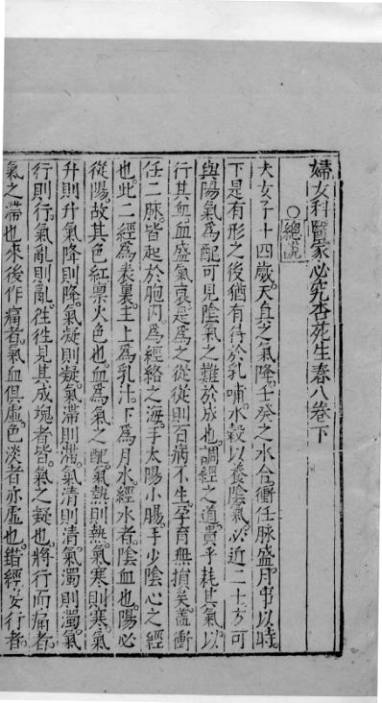 婦女科醫家必究杏苑生春八卷下
○總說
夫女子十四歲天真之氣降壬癸之水合衝任脉盛月事以時
下是有形之後猶有待於乳哺水穀以養陰氣必近二十方可
與陽氣爲配可見陰氣之難於成也調經之道貴乎耗其氣以
行其血血盛氣衰是爲之從從則百病不生孕育無損矣蓋衝
任二脉皆起於胞內爲經絡之海手太陽小腸手少陰心之經
也此二經爲表裏主上爲乳汁下爲月水經水者陰血也陽必
從陽故其色紅禀火色也血爲氣之配氣熱則熱氣寒則寒氣
升則升氣降則降氣凝則凝氣滯則滯氣清則清氣濁則濁氣
行則行氣亂則亂徃徃見其成塊者皆氣之凝也將行而痛者
氣之滯也來後作痛者氣血俱虛色淡者亦虛也錯經妄行者